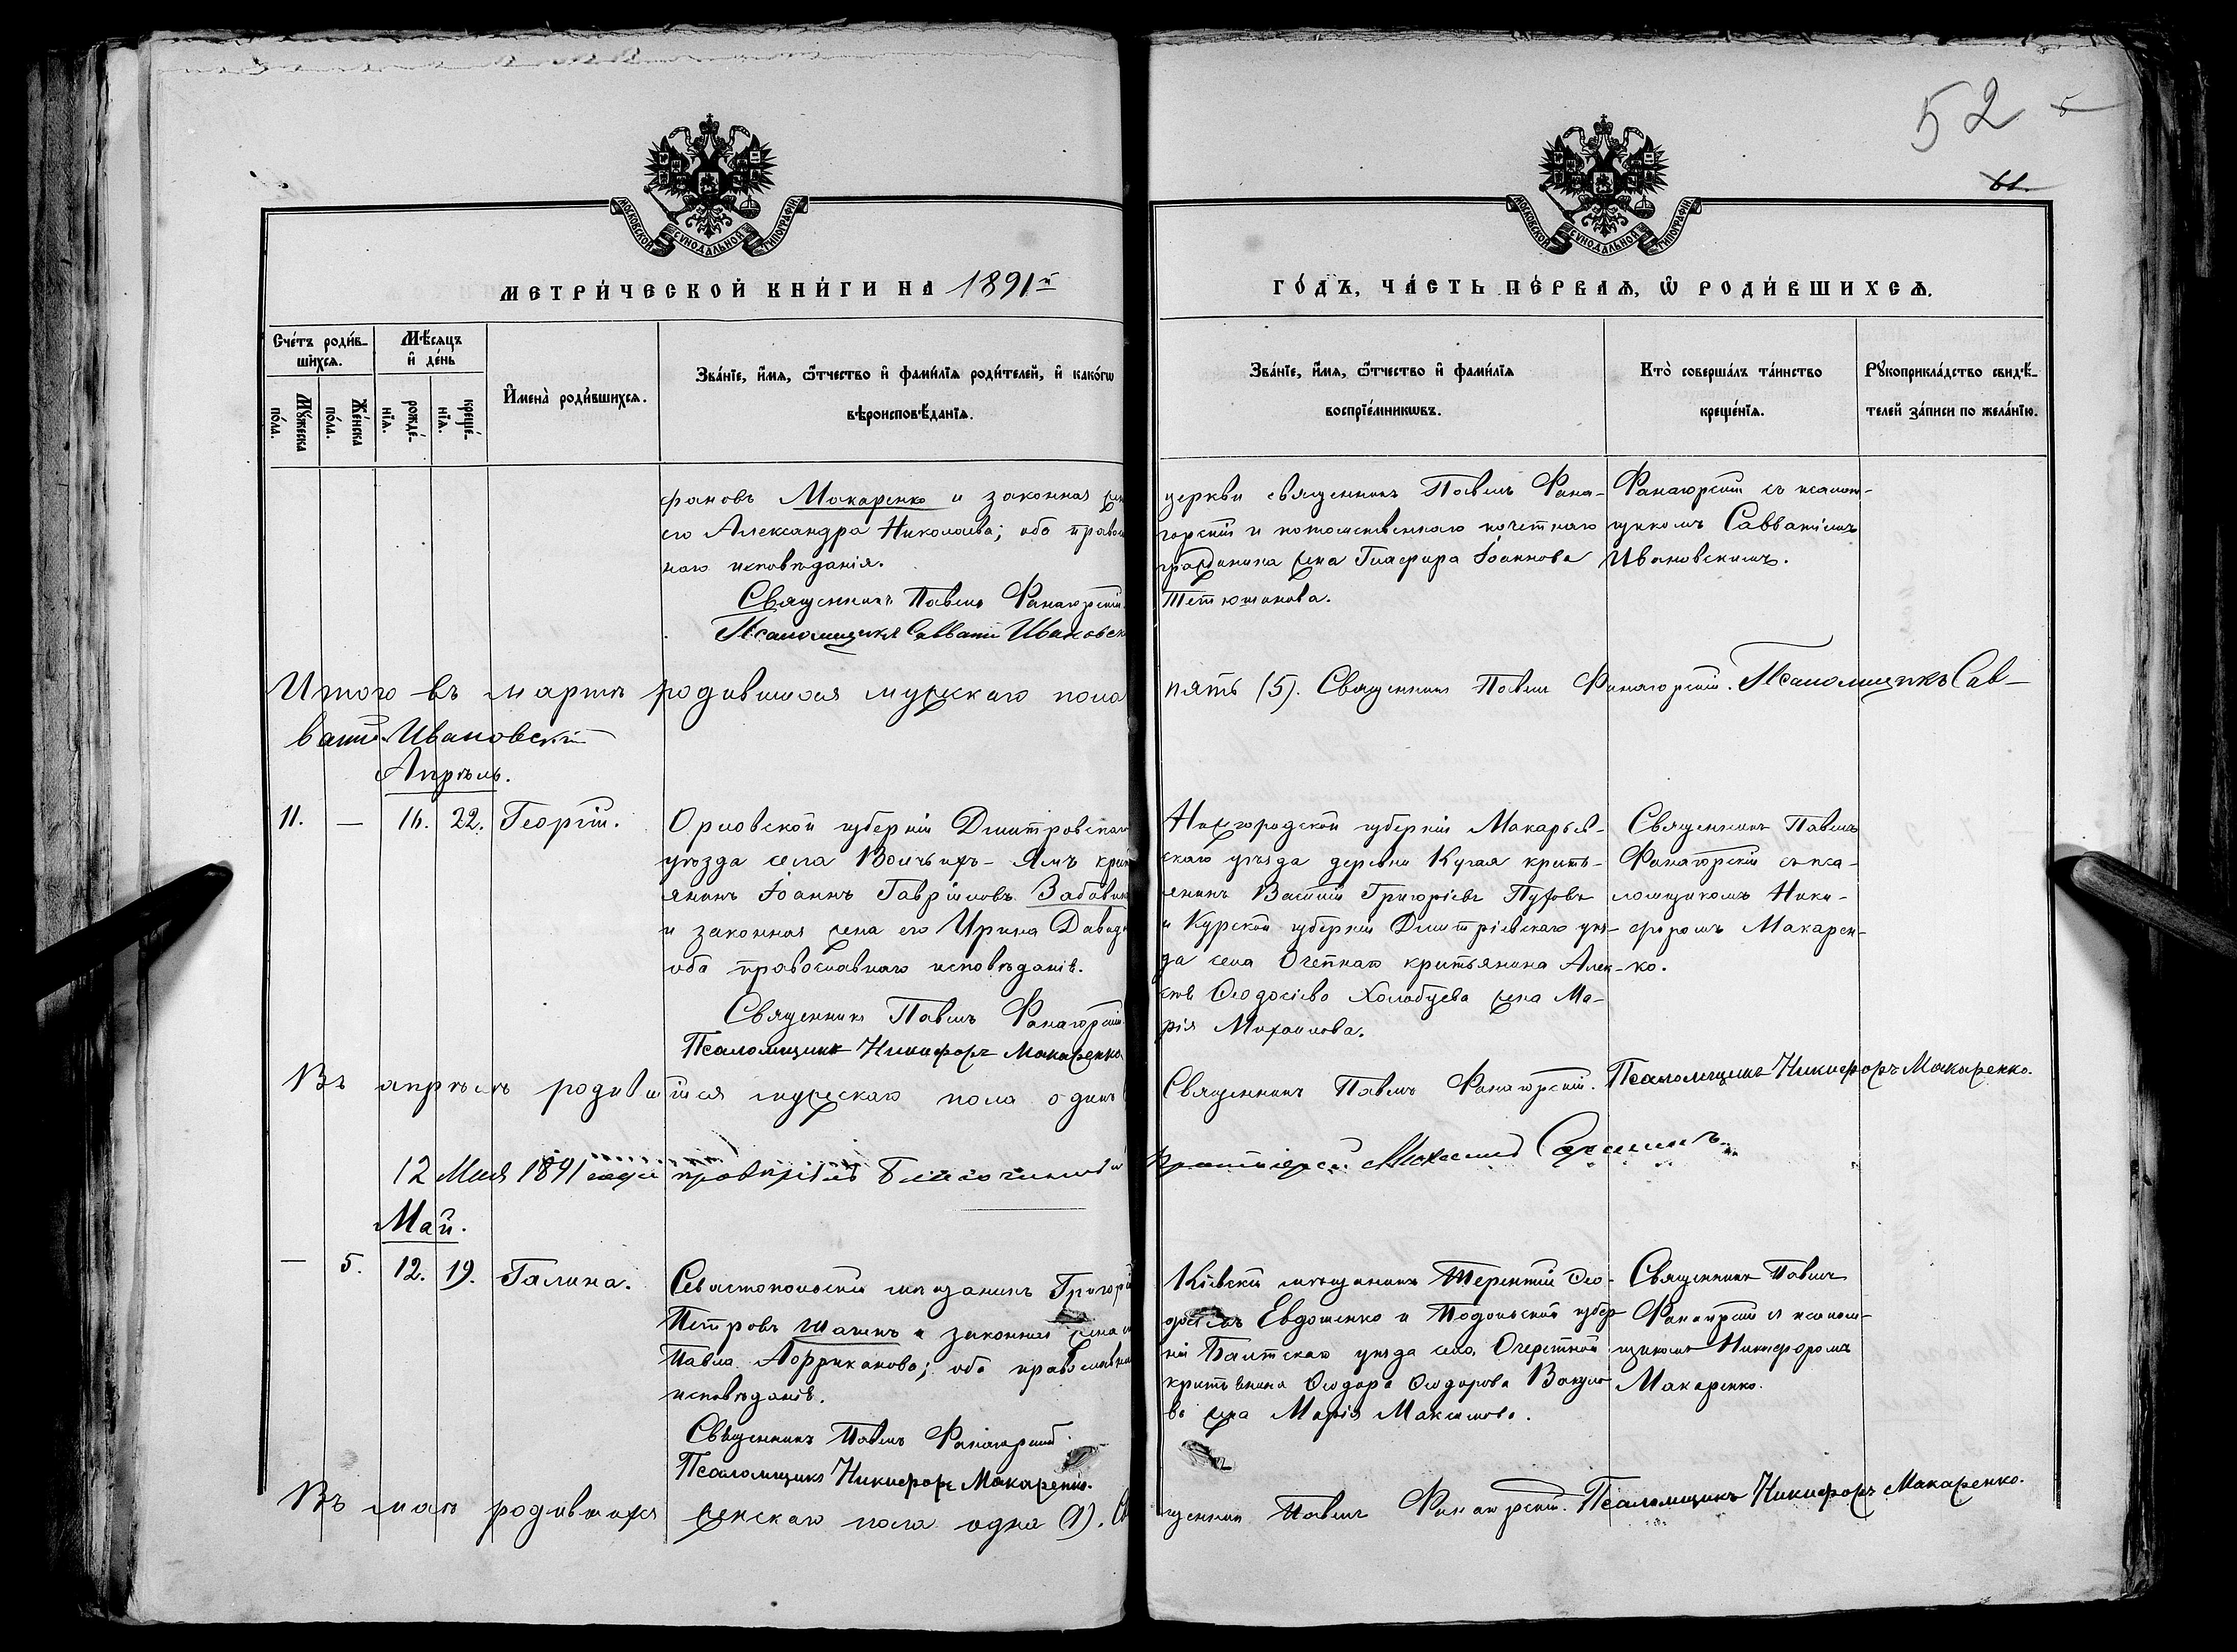 52
61.
МОСКОВСКОЙ СѴНОДАЛЬНОЙ ТИПОГРАФІИ
МОСКОВСКОЙ СѴНОДАЛЬНОЙ ТИПОГРАФІИ
МЕТРИ́ЧЕСКОЙ КНИ́ГИ НА 1891й
ГО́ДЪ, ЧА́СТЬ ПЕ́РВАѦ, Ѡ҆ РОДИ́ВШИХСѦ.
Сче́тъ роди́в-
шихсѧ.
Мꙋ́жеска по́ла.
Же́нска по́ла.
Мѣ́сѧцъ
и҆ де́нь
рожде́-
нїѧ.
креще́-
нїѧ.
И҆мена̀ роди́вшихсѧ.
Зва́нїе, и҆́мѧ, ѻ҆́тчество и҆ фами́лїѧ роди́телей, и҆ како́гѡ
вѣроисповѣ́данїѧ.
Зва́нїе, и҆́мѧ, ѻ҆́тчество и҆ фами́лїѧ
воспрїе́мникѡвъ.
Кто̀ соверша́лъ та́инство
креще́нїѧ.
Рꙋкоприкла́дство свидѣ́-
телей за́писи по жела́нїю.
фановъ Макаренко и законная же
его Александра Николаева; оба правос
наго исповѣданія.
Священникъ Павелъ Фанагорскій.
Псаломщикъ Савватій Ивановск
церкви священникъ Павелъ Фана-
горскій и потомственнаго почетнаго
гражданина жена Глафира Іоаннова
Тетюшинова.
Фанагорскій съ псалом-
щикомъ Савватіемъ
Ивановскимъ.
Итого въ мартѣ родившихся мужскаго пола пять (5). Священникъ Павелъ Фанагорскій. Псаломщикъ Сав-
ватій Ивановскій
Апрѣль.
11. — 16. 22. Георгій.
Орловской губерніи Дмитровскаго
уѣзда села Волчьихъ-Ямъ крес
янинъ Іоаннъ Гавріиловъ Забавин
и законная жена его Ирина Давидо
оба православнаго исповѣданія.
Священникъ Павелъ Фанагорскій.
Псаломщикъ Никифоръ Макаренко
Нижегородской губерніи Макарьев-
скаго уѣзда деревни крестъ-
янинъ Василій Григорьевъ Пуховъ
и Курской губерніи Дмитріевскаго уѣз-
да села крестьянина Алек-
сѣя Ѳеодосіева жена Ма-
рія Михаилова.
Священникъ Павелъ
Фанагорскій съ пса-
ломщикомъ Ники-
форомъ Макарен-
ко.
Въ апрѣлѣ родившійся мужескаго пола одинъ Священникъ Павелъ Фанагорскій. Псаломщикъ Никифоръ Макаренко.
12 Мая 1891 года провѣрялъ Благочинный Протоіерей Михаилъ
Май.
— 5. 12. 19. Галина.
Севастопольскій мѣщанинъ Григорій
Петровъ Шагинъ и законная жена е
Павла Африканова; оба православна
исповѣданія.
Священникъ Павелъ Фанагорскій.
Псаломщикъ Никифоръ Макаренко.
Кіевскій мѣщанинъ Терентій Ѳео-
досіевъ Евдошенко и Подольской губер-
ніи Балтскаго уѣзда села
крестьянина Ѳеодора Ѳеодорова
ва жена Марія Максимова.
Священникъ Павелъ
Фанагорскій съ псалом-
щикомъ Никифоромъ
Макаренко.
Въ маѣ родившихся женскаго пола одна (1). Священникъ Павелъ Фанагорскій. Псаломщикъ Никифоръ Макаренко.